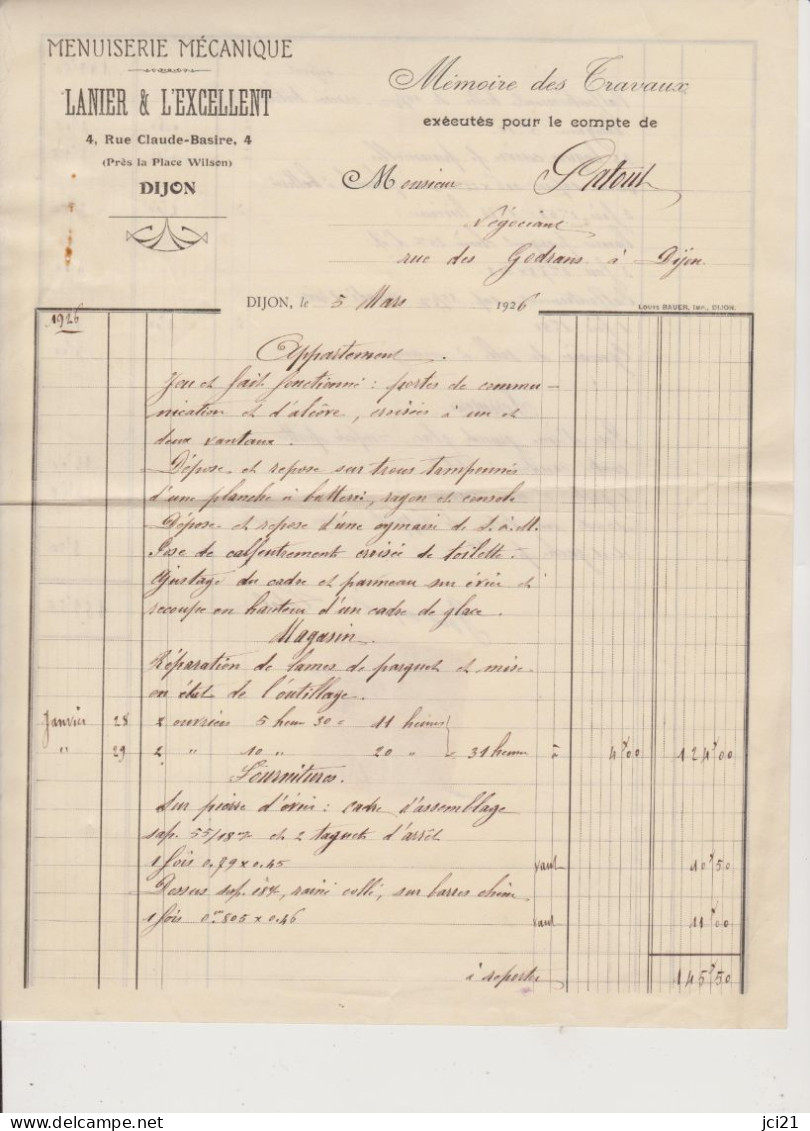 MENUISERIE MÉCANIQUE
LANIER & L'EXCELLENT
4, Rue Claude-Basire, 4
(Près la Place Wilson)
DIJON
Mémoire des Travaux
exécutés pour le compte de
Monsieur
Négociant
rue des Godrans à Dijon
DIJON, le 5 Mars 1926
LOUYS BAUER, IMP., DIJON.
1926
Appartement.
Jeu et fait fonctionné : portes de commu-
nication et d'alcôve, croisées à un et
deux vantaux.
Dépose et repose sur trous tamponnés
d'une planche à batterie, rayon et console
Dépose et repose d'une de S. à M.
Pose de calfeutrements croisée de toilette.
Ajustage du cadre et panneau sur évier et
recoupe en hauteur d'un cadre de glace.
Magasin.
Réparation de lames de parquet et mise
en état de l'outillage.
Janvier 28 2 ouvriers 5 heures 30 = 11 heures
" 29 2 " 10 " 20 " = 31 heures à 4f00 124f00
Fournitures.
Sur pierre d'évier : cadre d'assemblage
sap. 55/18 et 2 taquets d'arrêt
1 fois 0.79 x 0.45 vaut 10f50
Dessus sap. 18, rainé collé, sur barres chêne
1 fois 0m805 x 0.46 vaut 11f00
à reporter 145f50
jci21